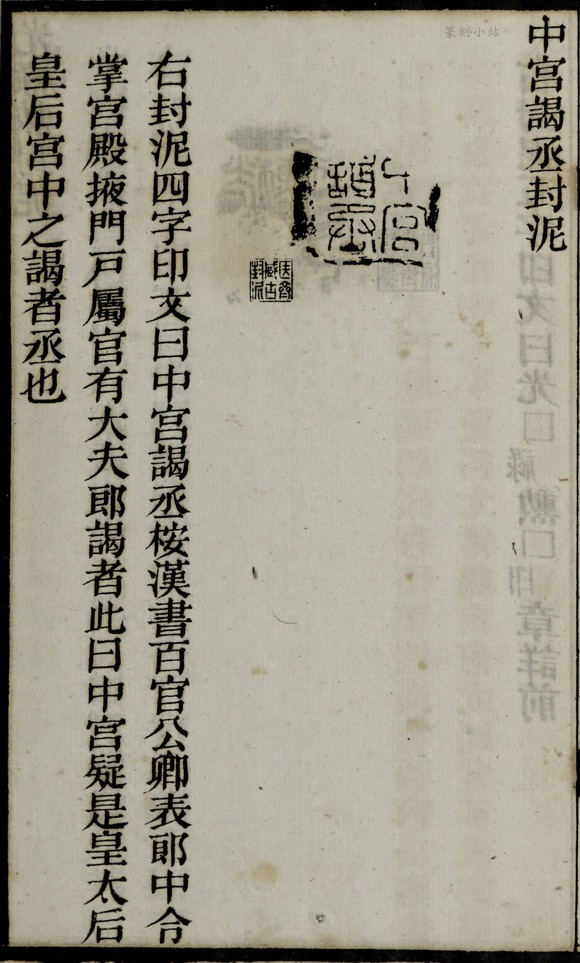 中宮謁丞封泥
篆刻小站
右封泥四字印文曰中宮謁丞桉漢書百官公卿表郎中令
掌宮殿掖門戸屬官有大夫郎謁者此曰中宮疑是皇太后
皇后宮中之謁者丞也